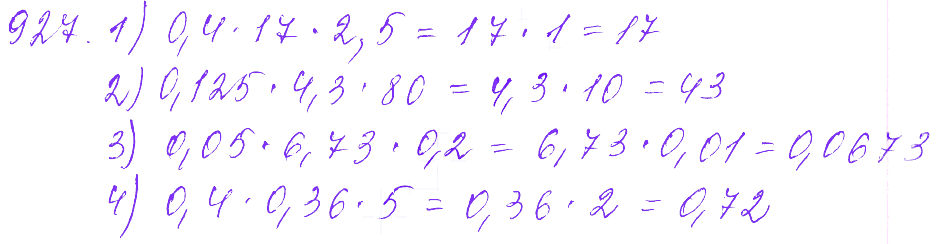 927. 1) 0,4 · 17 · 2,5 = 17 · 1 = 17
2) 0,125 · 4,3 · 80 = 4,3 · 10 = 43
3) 0,05 · 6,73 · 0,2 = 6,73 · 0,01 = 0,0673
4) 0,4 · 0,36 · 5 = 0,36 · 2 = 0,72